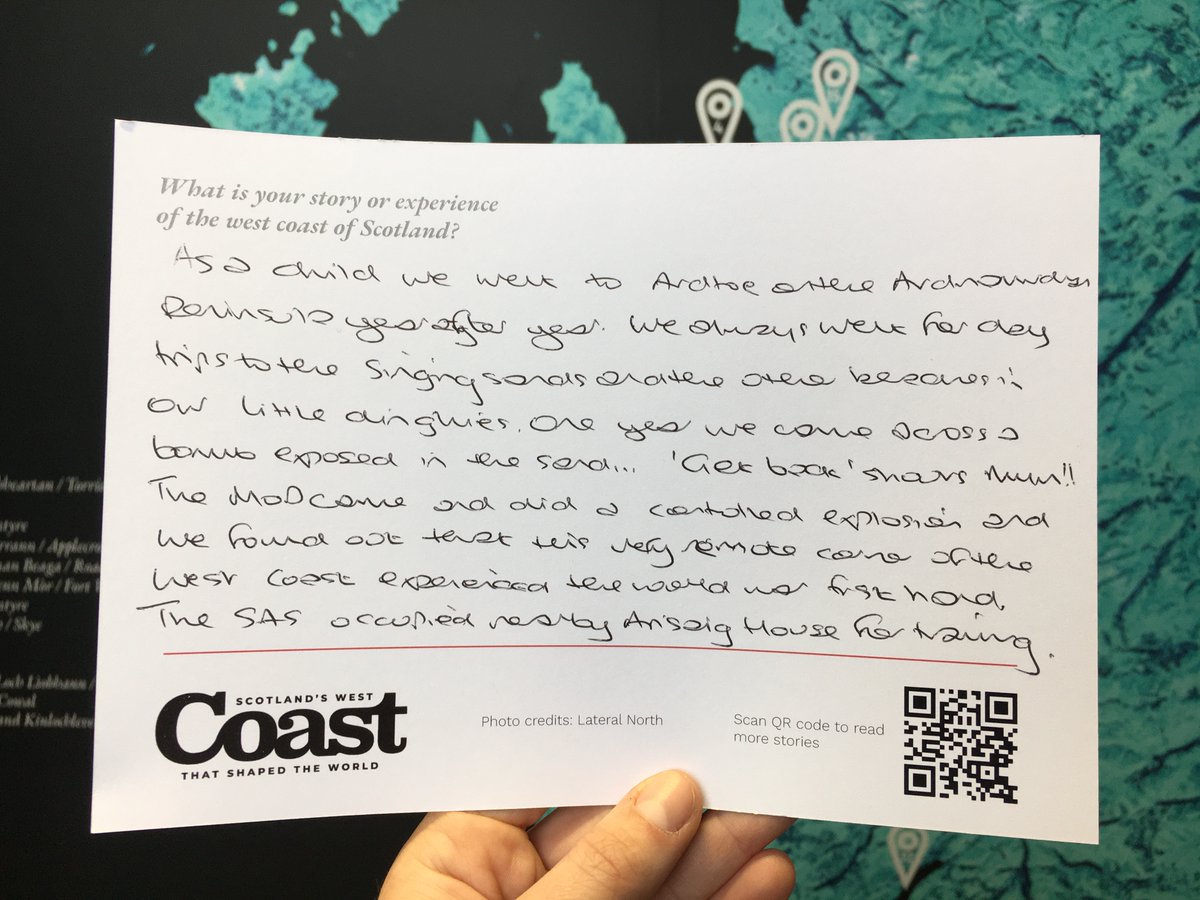 What is your story or experience
of the west coast of Scotland?
As a child we went to Ardtoe on the Ardnamurchan
Peninsula year after year. We always went for day
trips to the Singing Sands and the other beaches in
our little dinghies. One year we came across a
bomb exposed in the sand... 'Get back' shouts Mum!!
The MoD came and did a controlled explosion and
we found out that this very remote corner of the
West Coast experienced the world war first hand.
The SAS occupied nearby Arisaig House for training.
SCOTLAND'S WEST
Coast
THAT SHAPED THE WORLD
Photo credits: Lateral North
Scan QR code to read
more stories